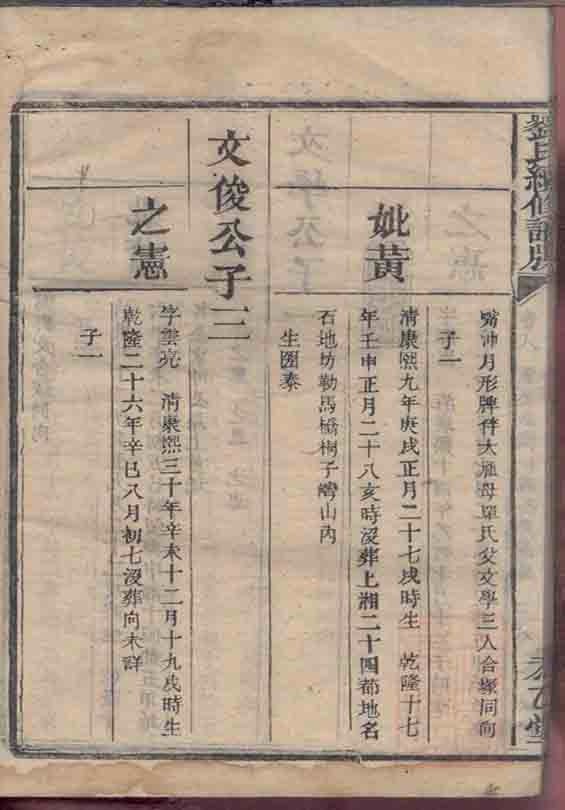 劉氏續修譜牒
嘴沖月形牌伴大雁母單氏父文學三人合塚同向
子一
妣黃
清康熙九年庚戌正月二十七戌時生 乾隆十七
年壬申正月二十八亥時沒葬上湘二十四都地名
石地坊勒馬橋桐子灣山內
生圈泰
文俊公子三
之憲
字雲亮 清康熙三十年辛未十二月十九戌時生
乾隆二十六年辛巳八月初七沒葬向未詳
子一